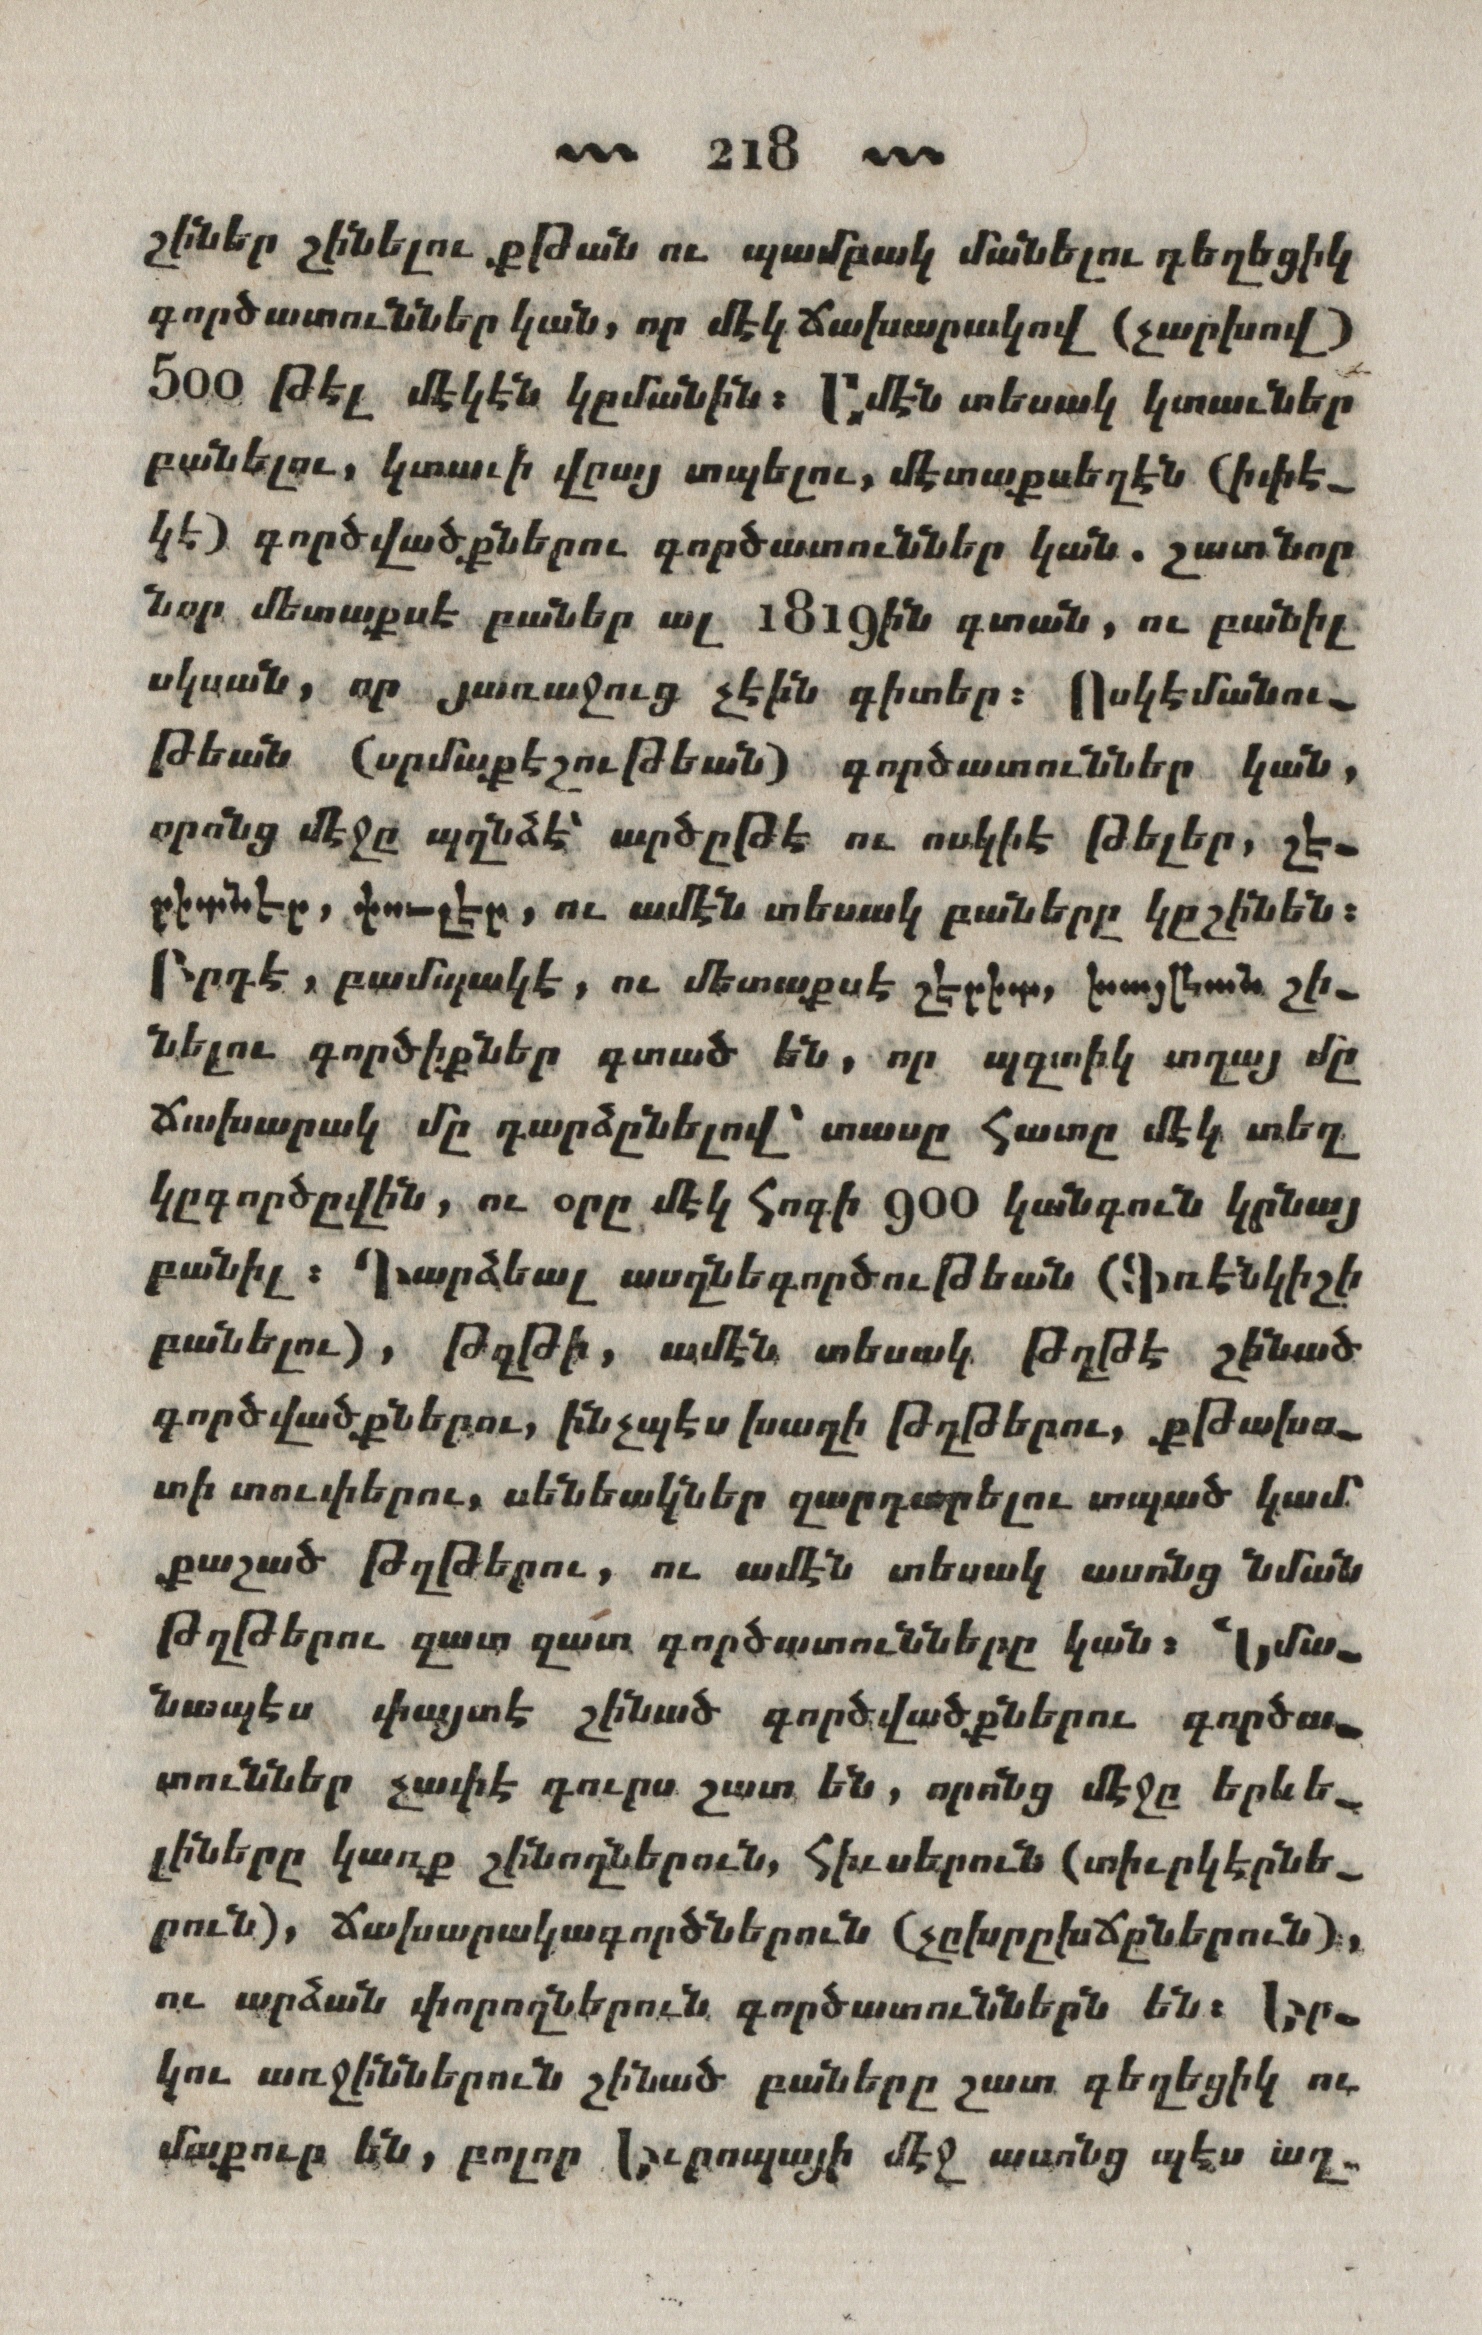 218
շիներ շինելու քթան ու պամբակ մանելու դեղեցիկ
գործատուններ կան, որ մէկ ճախարակով (չարխով)
500 թէլ մէկէն կըմանին։ Ամէն տեսակ կտաւներ
բանելու, կտաւի վրայ տպելու, մէտաքսեղէն (իփէ֊
կէ) գործվածքներու գործատուններ կան. շատ նոր
նոր մետաքսէ բաներ ալ 1819ին գտան, ու բանիլ
սկսան, որ յառաջուց չէին գիտեր։ Ոսկեմանու֊
թեան (սրմաքէշութեան) գործատուններ կան,
որոնց մէջը պղնձէ՝ արծըթէ ու ոսկիէ թելեր, շէ֊
րիտնէր, փուլչէր, ու ամէն տեսակ բաները կըշինեն։
Բրդէ, բամպակէ, ու մետաքսէ շէրիտ, խայթան շի֊
նելու գործիքներ գտած են, որ պզտիկ տղայ մը
ճախարակ մը դարձընելով՝ տասը հատը մէկ տեղ
կըգործըվին, ու օրը մէկ հոգի 900 կանգուն կրնայ
բանիլ։ Դարձեալ ասղնեգործութեան (Ֆռէնկիշի
բանելու), թղթի, ամէն տեսակ թղթէ շինած
գործվածքներու, ինչպէս խաղի թղթերու, քթախո֊
տի տուփերու, սենեակներ զարդարելու տպած կամ
քաշած թղթերու, ու ամէն տեսակ ասոնց նման
թղթերու զատ զատ գործատունները կան։ Նմա֊
նապէս փայտէ շինած գործվածքներու գործա֊
տուններ չափէ դուրս շատ են, որոնց մէջը երևե֊
լիները կառք շինողներուն, հիւսերուն (տիւրկէրնե֊
րուն), ճախարակագործներուն (չըխրըխճըներուն),
ու արձան փորողներուն գործատուններն են։ Եր֊
կու առջիններուն շինած բաները շատ գեղեցիկ ու
մաքուր են, բոլոր Եւրոպայի մէջ ասոնց պէս աղ֊